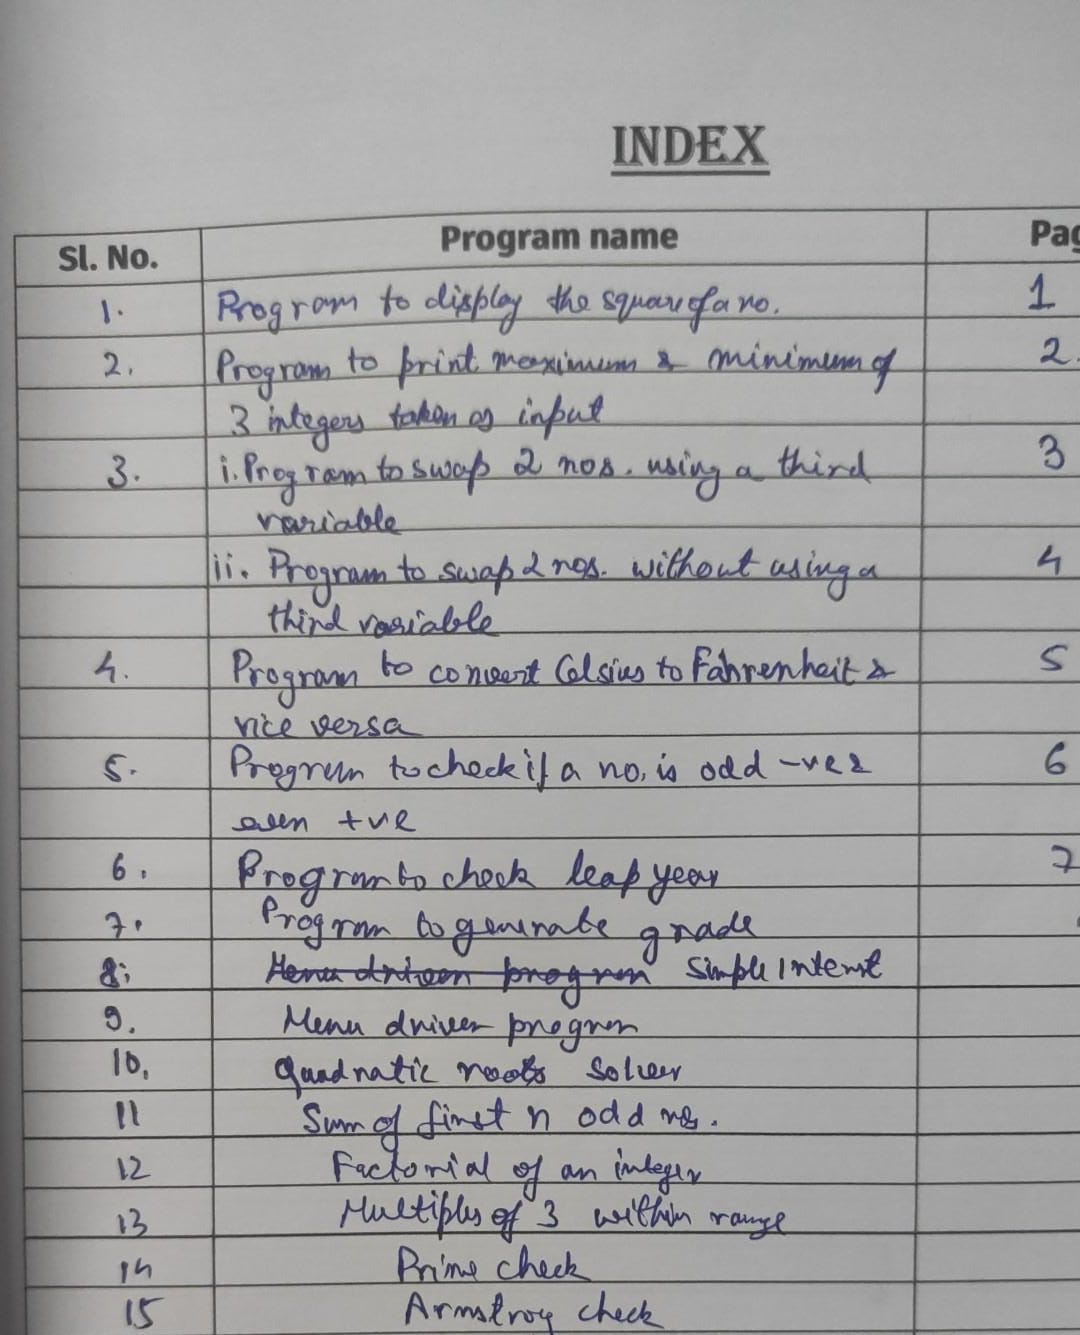 INDEX
Sl. No. Program name Pag
1. Program to display the square of a no. 1
2. Program to print maximum & minimum of 2.
3 integers taken as input
3. i. Program to swap 2 nos. using a third 3
variable
ii. Program to swap 2 nos. without using a 4
third variable
4. Program to convert Celsius to Fahrenheit & 5
vice versa
5. Program to check if a no. is odd -ve & 6
even +ve
6. Program to check leap year 7
7. Program to generate grade
8. Menu driven program Simple Interest
9. Menu driven program
10. Quadratic roots solver
11 Sum of first n odd nos.
12 Factorial of an integer
13 Multiples of 3 within range
14 Prime check
15 Armstrong check